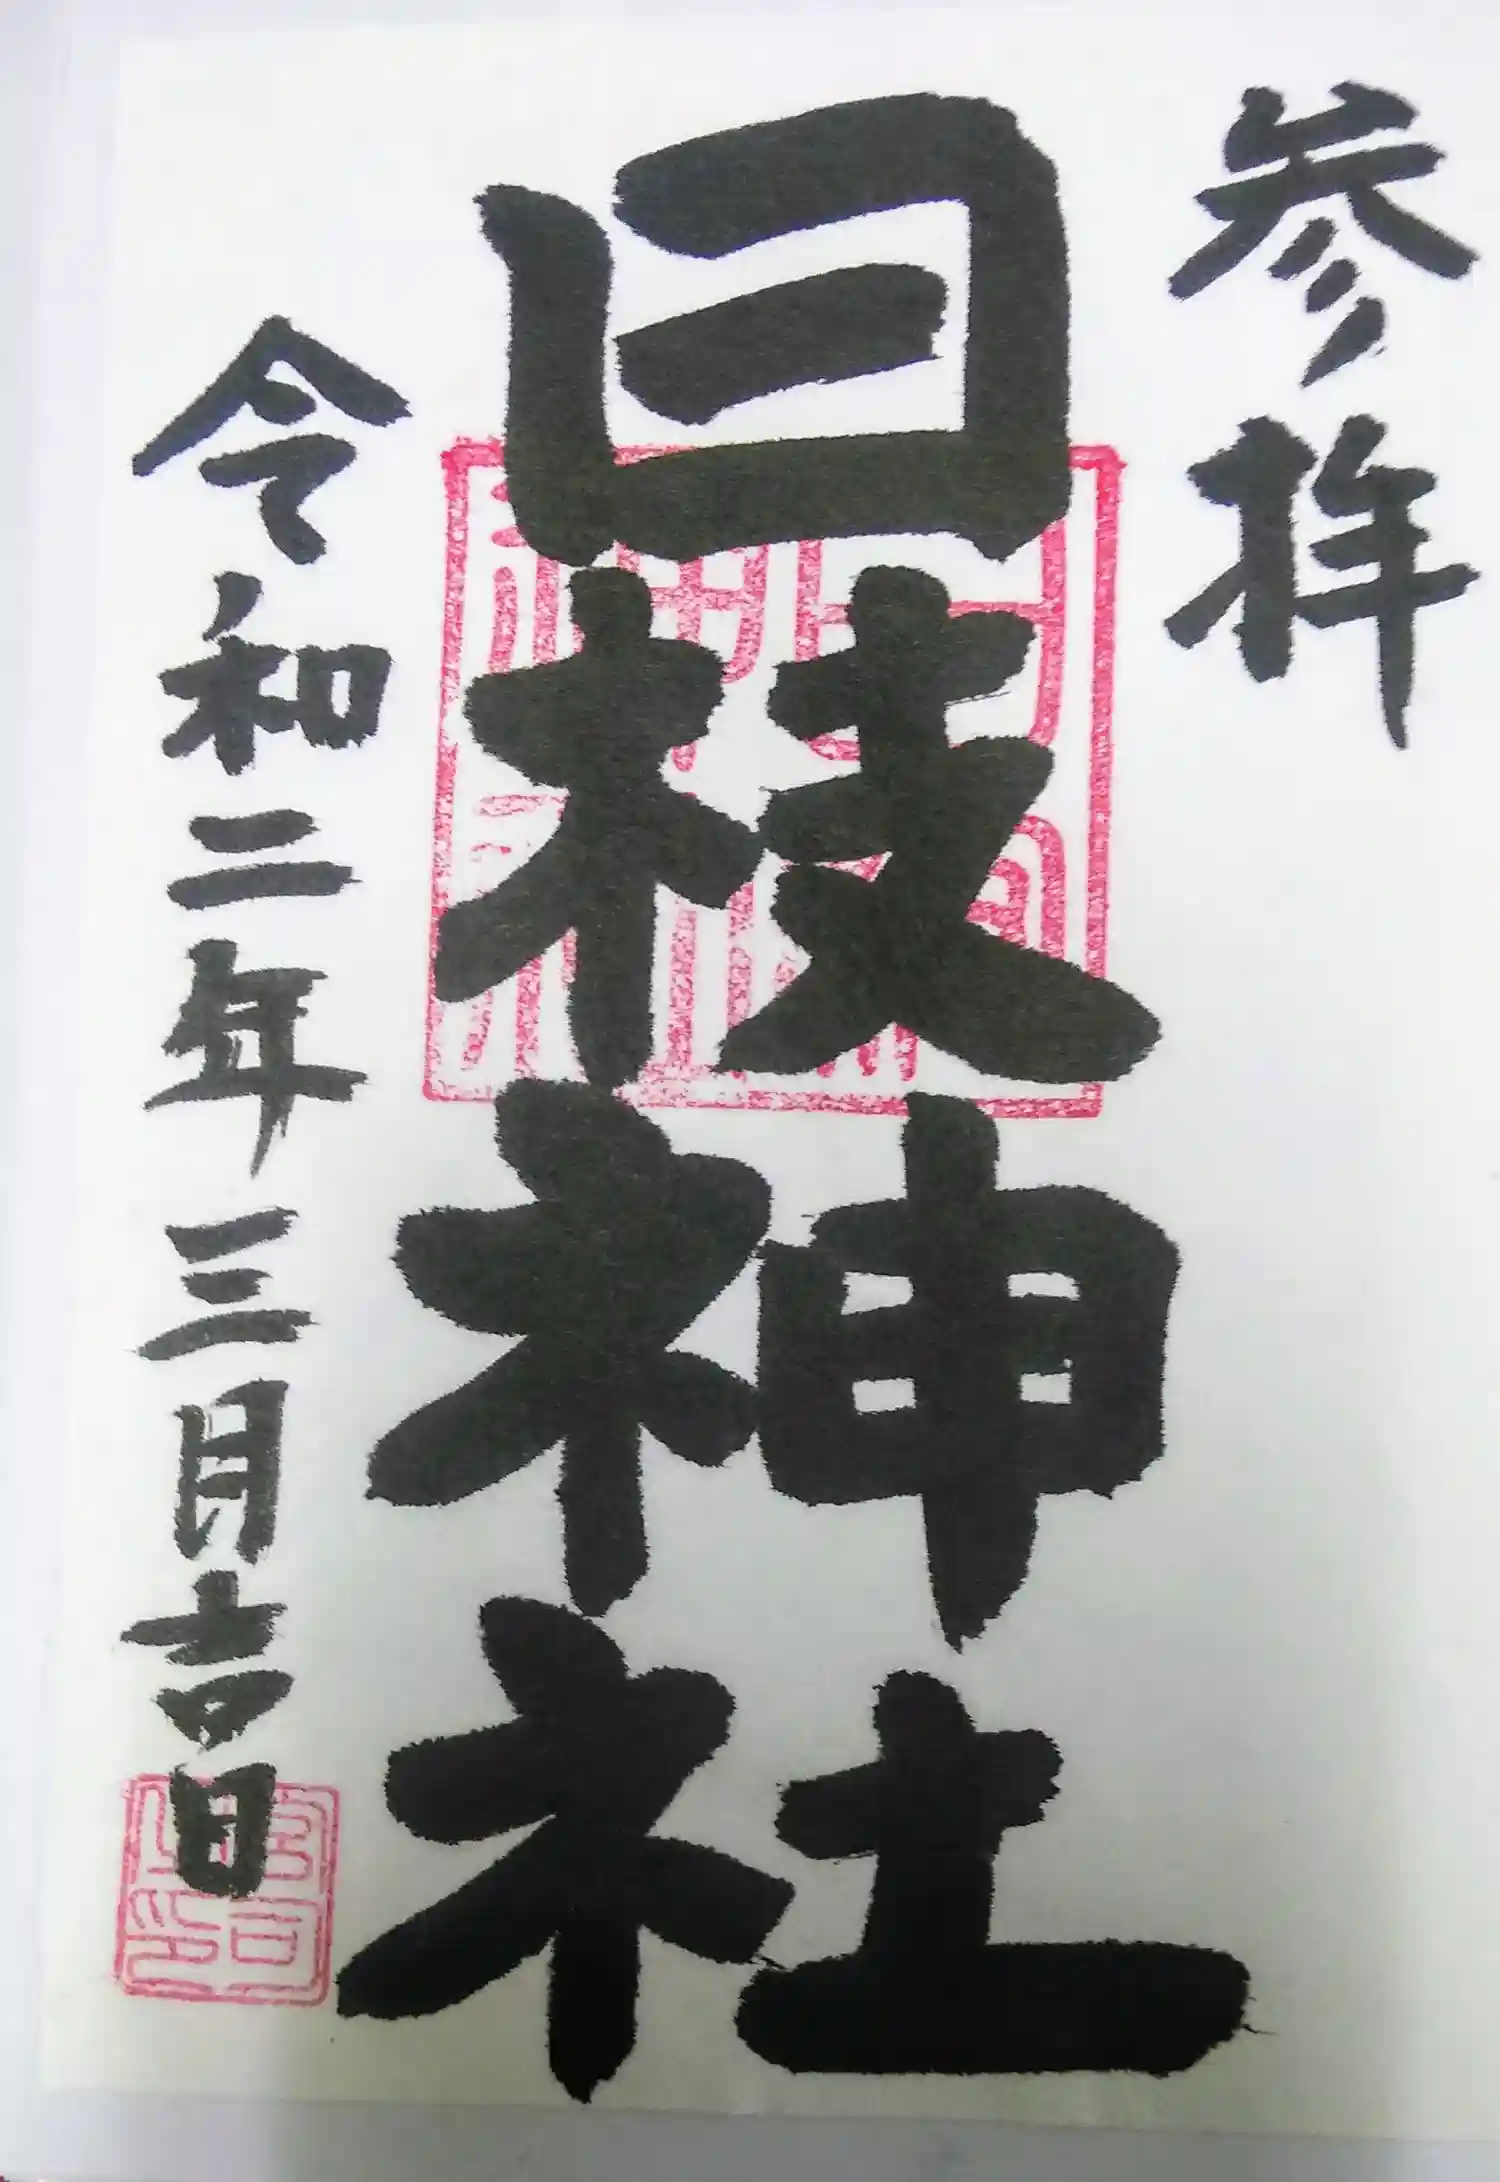 参拝
日枝神社
令和二年三月吉日